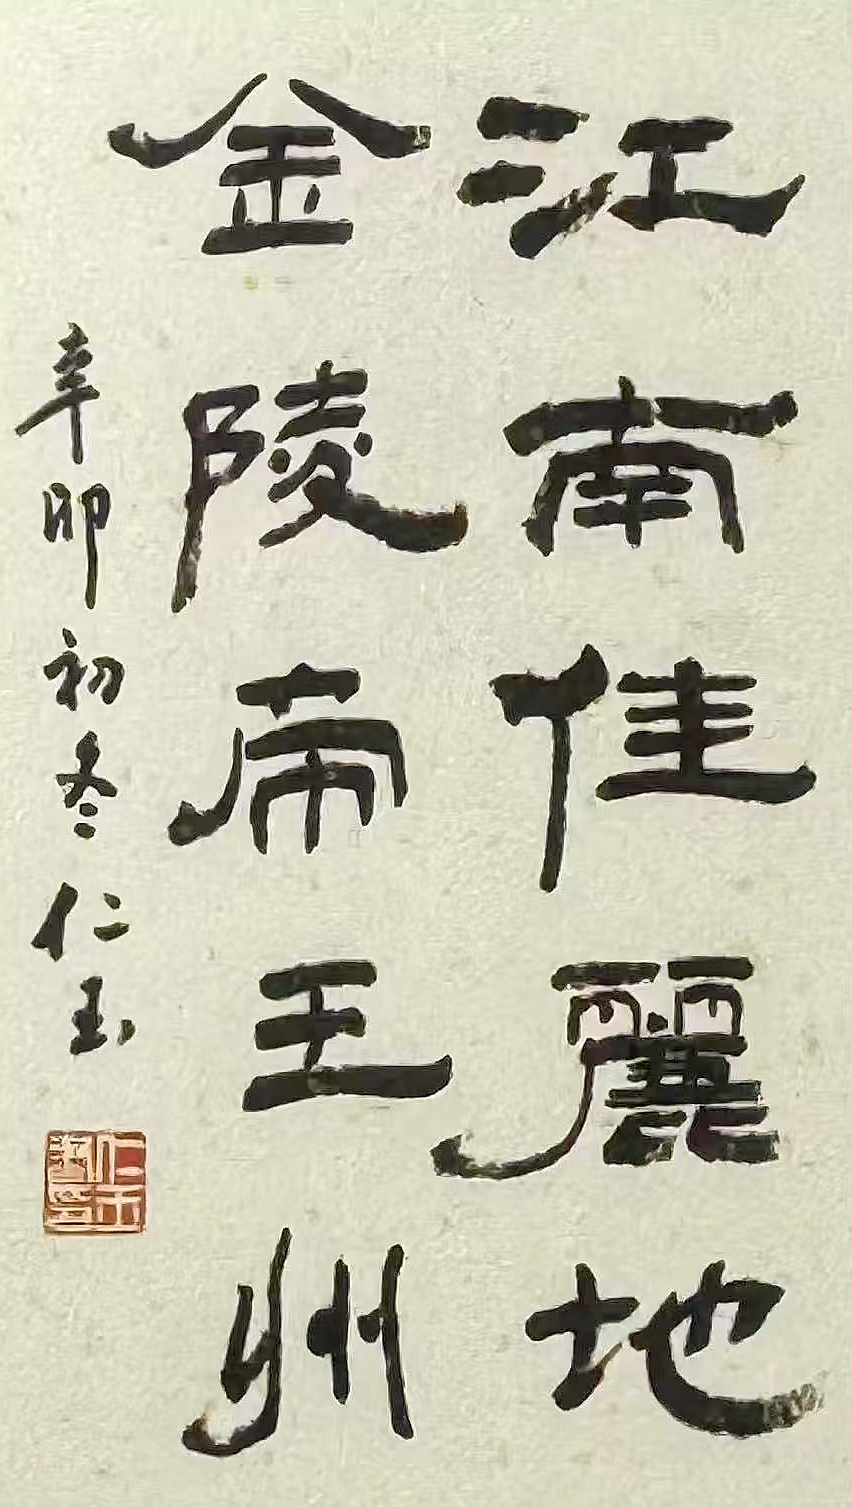 江南佳麗地
金陵帝王州
辛卯初冬仁玉